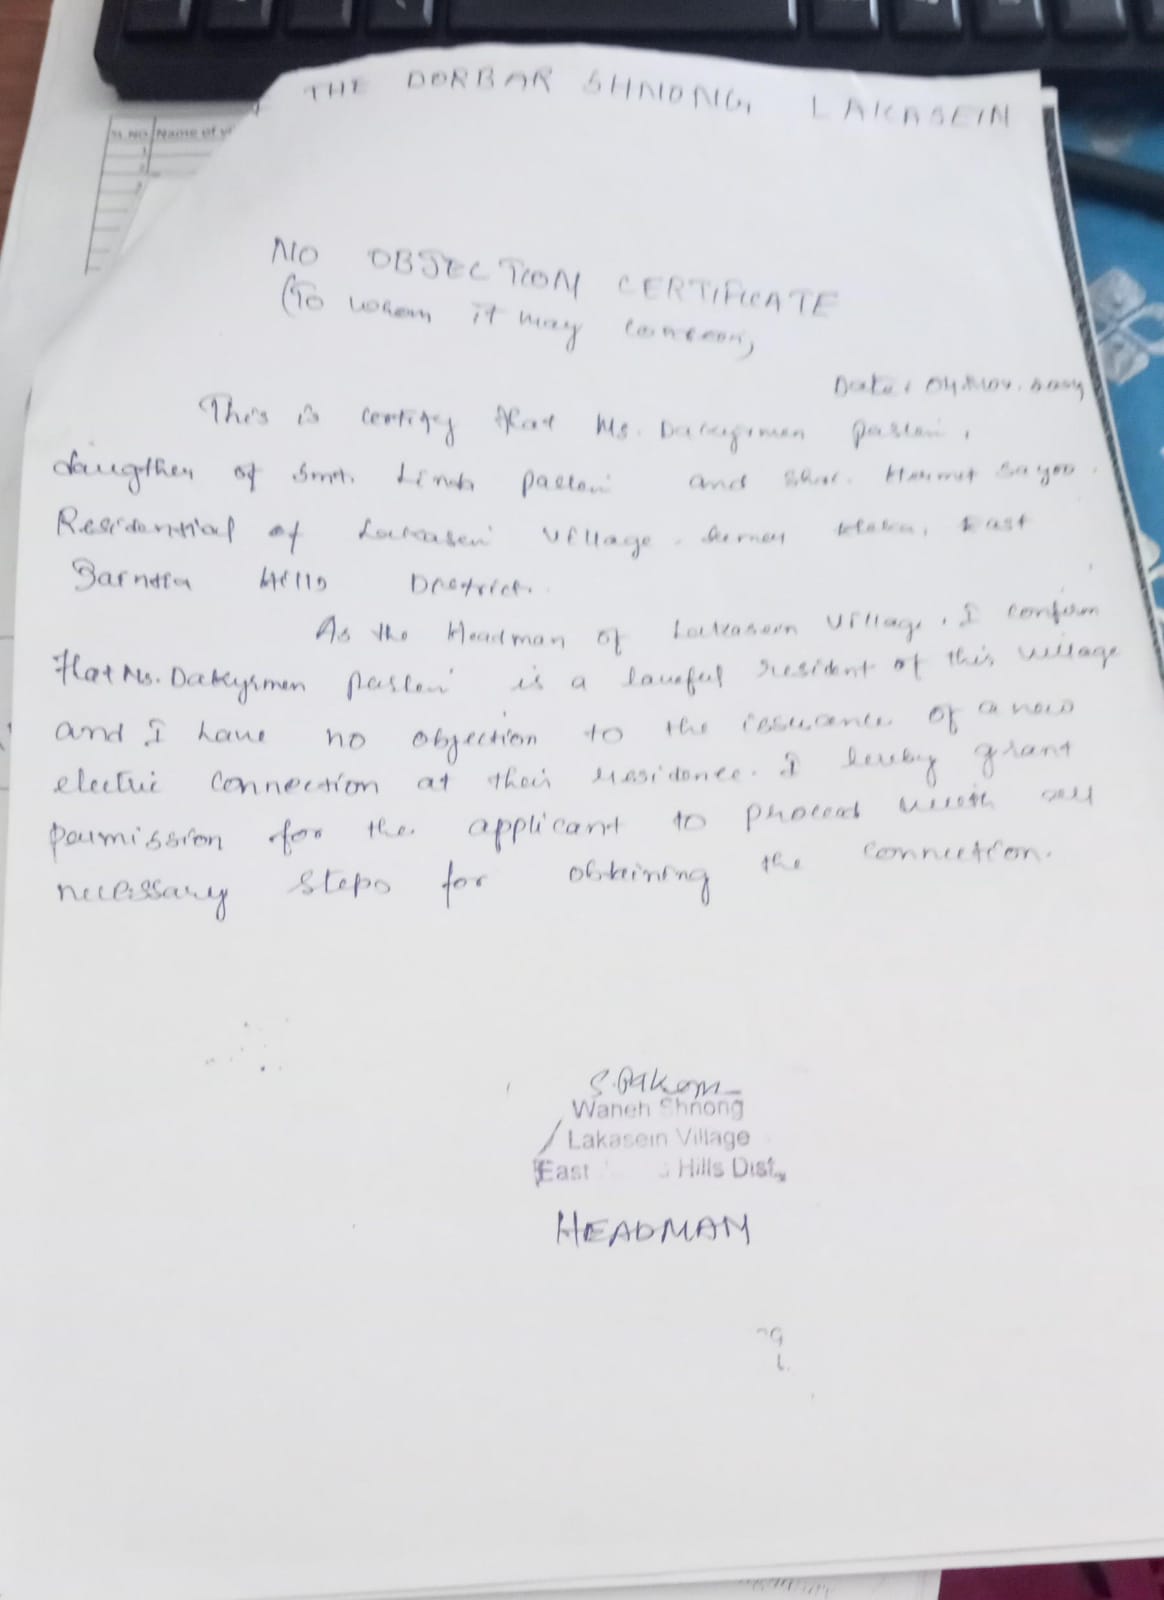 THE DORBAR SHNONG, LAKASEIN
SL.NO Name of
1
2
3
NO OBJECTION CERTIFICATE
(To whom it may concern)
Date: 04.Nov.
This is certify that Ms. Dakysmen paslein,
daugther of Smt. Linda paslein and Shri. Hermet Sayoo.
Residential of Lakasein Village. East
Jaintia Hills District.
As the Headman of Lakasein Village, I confirm
that Ms. Dakysmen paslein is a lawful resident of this village
and I have no objection to the issuance of a new
electric connection at their residence. I hereby grant
permission for the applicant to proceed with all
necessary steps for obtaining the connection.
Waheh Shnong
Lakasein Village
East Hills Dist.,
HEADMAN